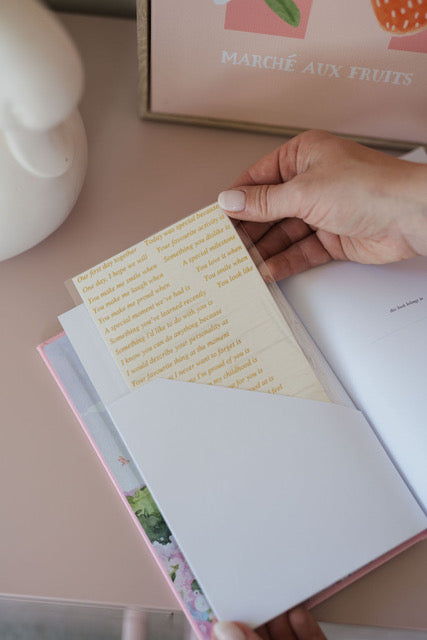 MARCHÉ AUX FRUITS
Our first day together
Today was special because
One day, I hope we will
Your favourite activity is
You make me smile when
Something you dislike is
You make me laugh when
A special milestone
You make me proud when
You love it when
A special moment we've had is
You smile when
Something you've learned recently
You look like
Something I'd like to do with you is
I know you can do anything because
I would describe your personality as
Your favourite thing at the moment
I never want to forget is
I'm proud of you is
my childhood is
for you is
this book belongs to